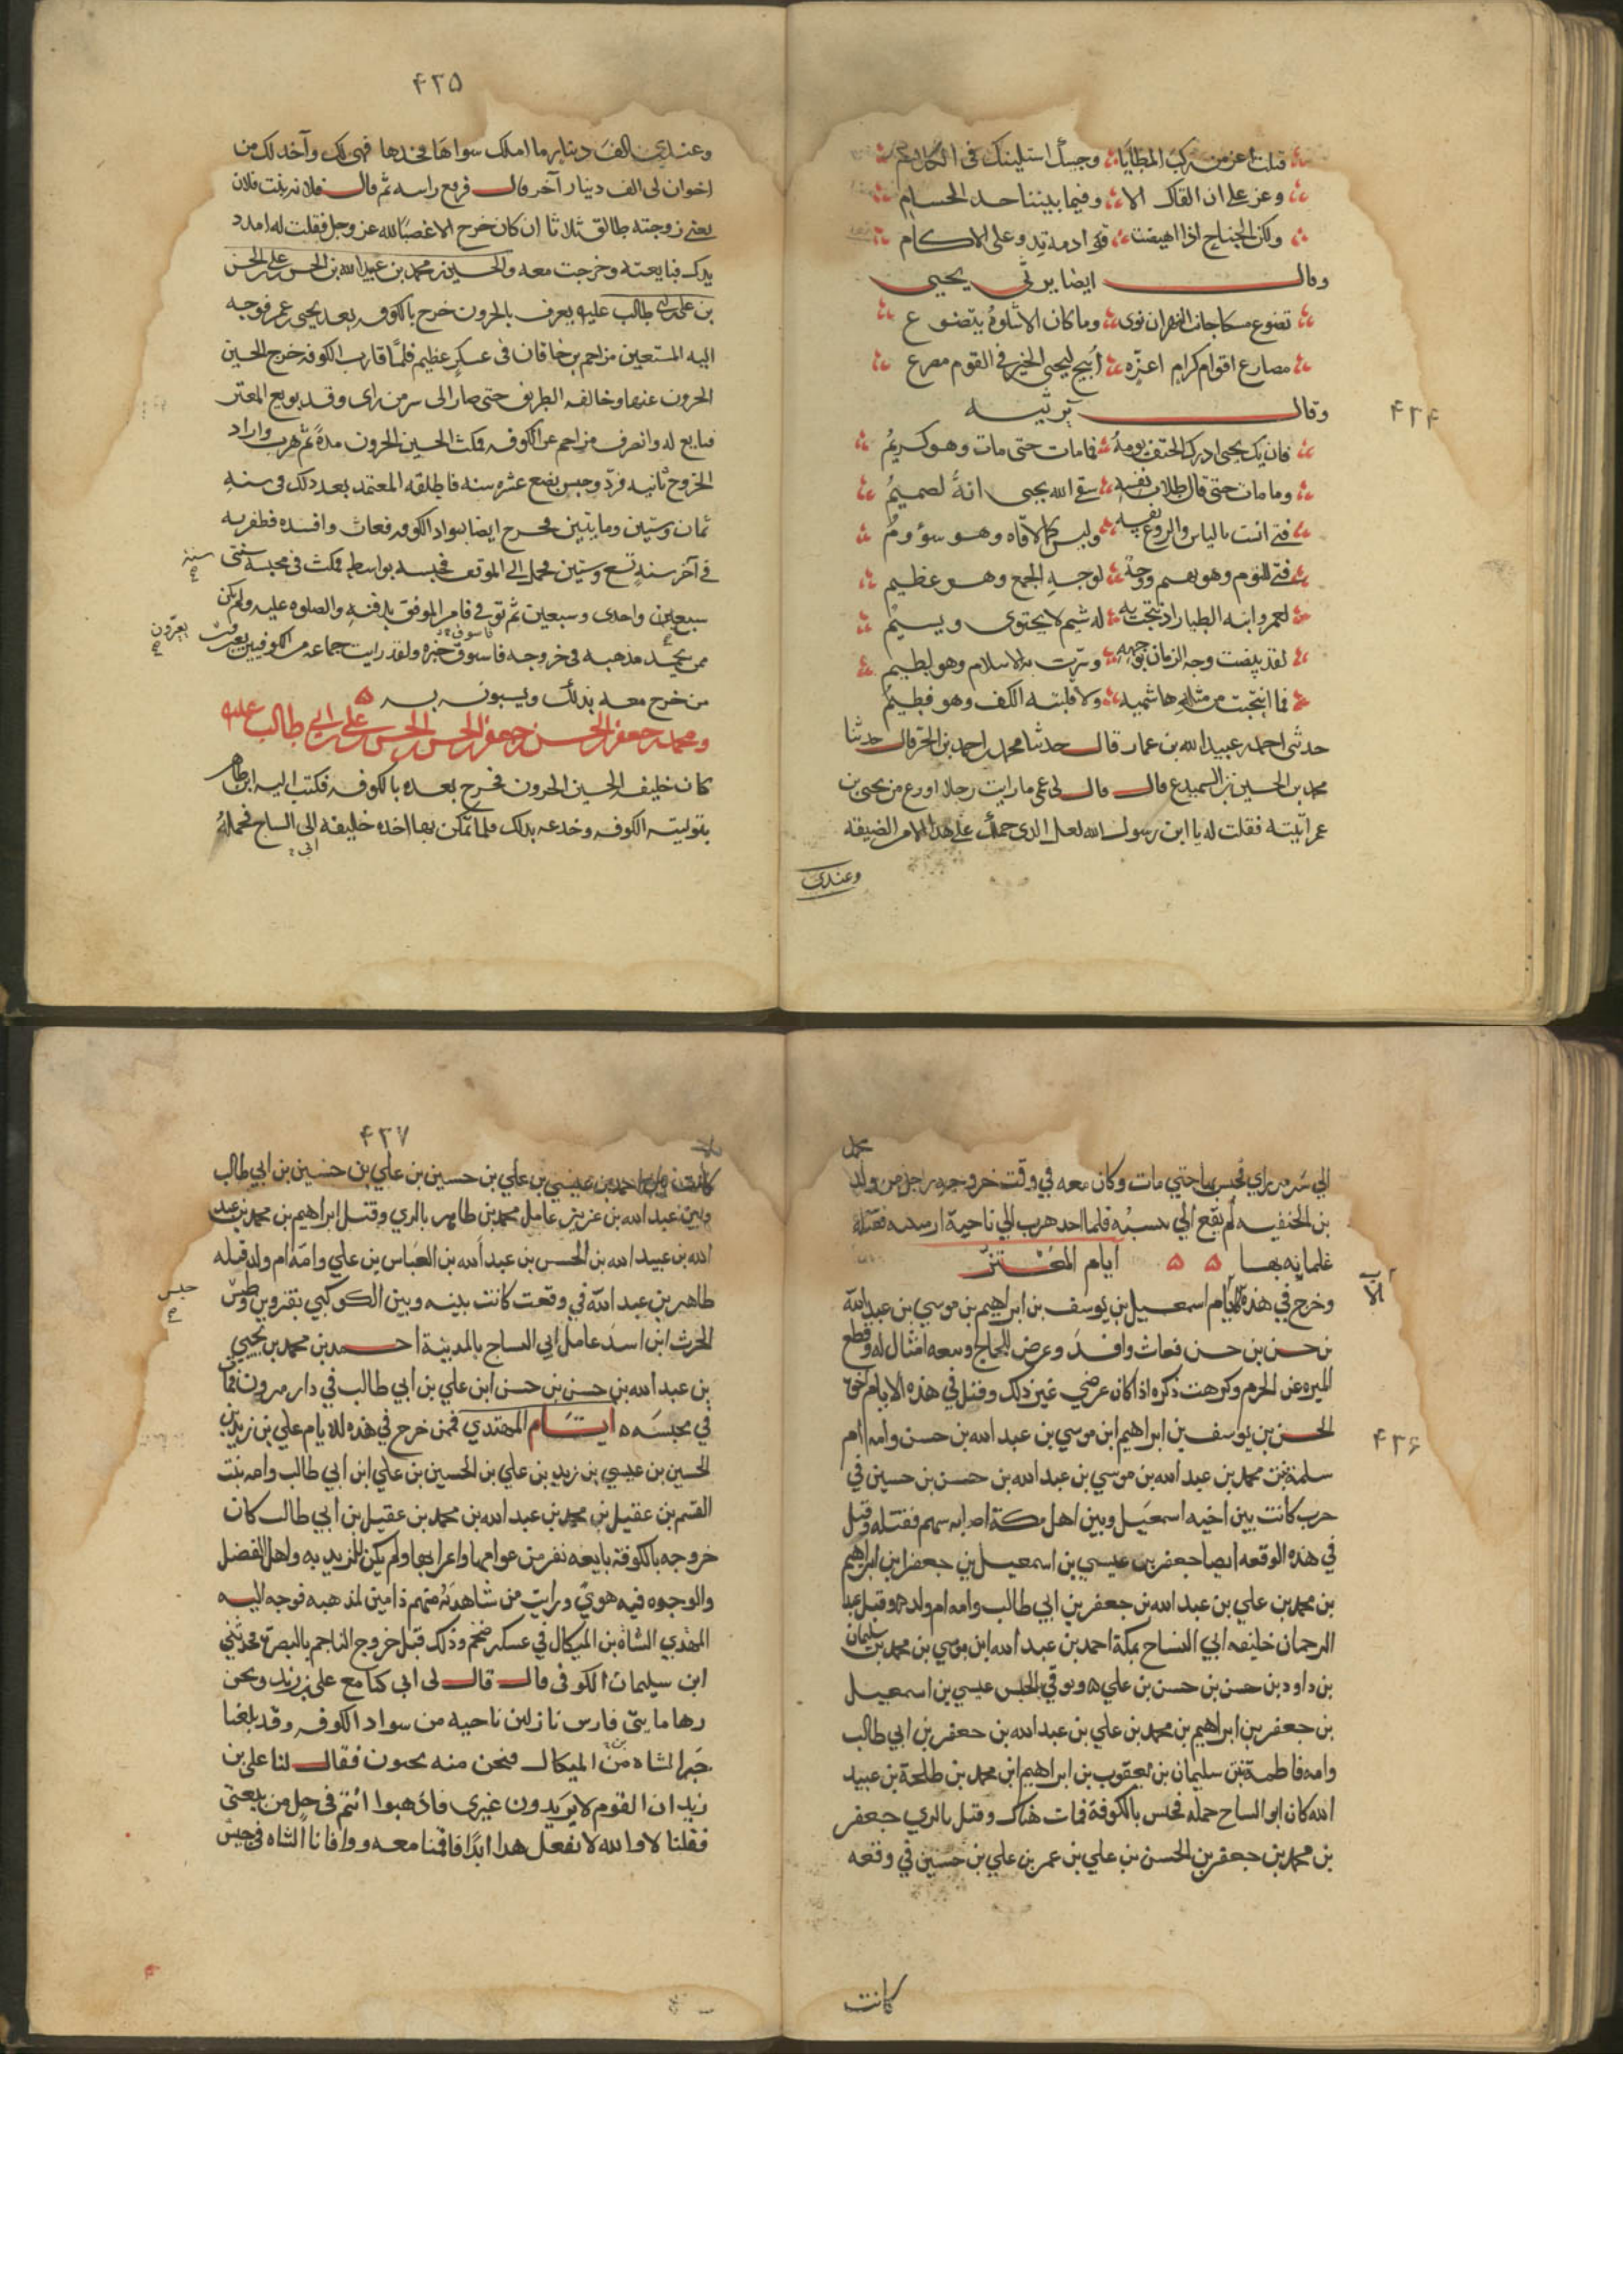 ۴۲۴
قتلت اعز من ركب المطايا وجئتك استلينك فى الكلام
وعز على ان القاك الا وفيما بيننا حد الحسام
ولكن الجناح اذا اهيضت قوادمه يدف على الاكام
وقال ايضا يرثى يحيى
تضوع مسكا جانب النهران ثوى وما كان الا شلوه يتضوع
مصارع اقوام كرام اعزه ابيح ليحيى الخير فى القوم مصرع
وقال يرثيه
فان يك يحيى ادرك الحتف يومه فما مات حتى مات وهو كريم
وما مات حتى قال طلاب نفسه سقى الله يحيى انه لصميم
فتى انست بالباس والروع نفسه وليس كما لاقاه وهو سؤوم
فتى للقوم وهو بهم ووجه لوجه الجمع وهو عظيم
لعمر ابنه الطيار اذ نتجت به له شيم لا تحتوى ويسيم
لقد بيضت وجه الزمان بوجهه وسرت به الاسلام وهو لطيم
فما انتجبت من مثله هاشميه ولا قلبته الكف وهو فطيم
حدثنى احمد بن عبيد الله بن عمار قال حدثنا محمد بن احمد بن الحر قال حدثنا
محمد بن الحسين بن السميدع قال قال لى عمى ما رايت رجلا اورع من يحيى بن
عمر اتيته فقلت له يا ابن رسول الله لعل الذى حملك على هذا الامر الضيقه
وعندى
۴۲۵
وعندى الف دينار ما املك سواها فخذها فهى لك وآخذ لك من
اخوان لى الف دينار آخر قال فرفع راسه ثم قال فلانه بنت فلان
يعنى زوجته طالق ثلاثا ان كان خرج الا غضبا لله عز وجل فقلت له امدد
يدك فبايعته وخرجت معه والحسين بن محمد بن عبيد الله بن الحسن بن على بن الحسن
بن على بن ابى طالب عليه يعرف بالحرون خرج بالكوفه بعد يحيى بن عمر فوجه
اليه المستعين مزاحم بن خاقان فى عسكر عظيم فلما قارب الكوفه خرج الحسين
الحرون عنها وخالفه الطريق حتى صار الى سر من راى وقد بويع المعتز
فبايع له وانصرف مزاحم عن الكوفه فمكث الحسين الحرون مدة ثم هرب واراد
الخروج ثانيه فرد وحبس بضع عشره سنه فاطلقه المعتمد بعد ذلك فى سنه
ثمان وستين ومايتين فخرج ايضا بسواد الكوفه فعاث وافسد فظفر به
فى آخر سنه تسع وستين فحمل الى الموفق فحبسه بواسط فمكث فى محبسه سنتى
سنة
سبعين واحدى وسبعين ثم توفى فامر الموفق بدفنه والصلوه عليه ولم يكن
ممن يحمد مذهبه فى خروجه فاسوق خبره ولقد رايت جماعه من الكوفيين يعرف
يعرّون
من خرج معه بذلك ويسبون به ۵
ومحمد بن جعفر بن الحسن بن جعفر بن الحسن بن الحسن بن على بن ابى طالب عليه
كان خليفه الحسين الحرون فخرج بعده بالكوفه فكتب اليه ابن طاهر
بتوليته الكوفه وخدعه بذلك فلما تمكن بها اخذه خليفه الى الساج فحمله
ابى
۴۲۶
الي سُر من راي فحبس بها حتي مات وكان معه في وقت خروجه رجل من ولد
محمد
بن الحنفيه لم يقع الي نسبُه فلما اخذ هرب الي ناحية ارمينيه فقتله
غلمانه بها ۵ ۵ أيام المُعْتز
وخرج في هذه الايام اسمعيل بن يوسف بن ابراهيم بن موسي بن عبدالله
بن حسن بن حسن فعاث وافسد وعرض للحاج وتبعه امثال له وقطع
الميره عن الحرم وكرهت ذكره اذا كان غرضي غير ذلك وقتل في هذه الايام اخوه
الحسن بن يوسف بن ابراهيم ابن موسي بن عبد الله بن حسن وامه ام
سلمة بنت محمد بن عبد الله بن موسي بن عبد الله بن حسن بن حسين في
حرب كانت بين اخيه اسمعيل وبين اهل مكة اصابه سهم فقتله وقتل
في هذه الوقعه ايضا جعفر بن عيسي بن اسمعيل بن جعفر ابن ابراهيم
بن محمد بن علي بن عبد الله بن جعفر بن ابي طالب وامه ام ولد وقتل عبد
الرحمان خليفه ابي الساج بمكة احمد بن عبد الله ابن موسي بن محمد بن سليمان
بن داود بن حسن بن حسن بن علي ۵ وتوفي في الحبس عيسي بن اسمعيل
بن جعفر بن ابراهيم بن محمد بن علي بن عبد الله بن جعفر بن ابي طالب
وامه فاطمة بنت سليمان بن يعقوب بن ابراهيم ابن محمد بن طلحة بن عبيد
الله كان ابو الساج حمله فحبس بالكوفة فمات هناك وقتل بالري جعفر
بن محمد بن جعفر بن الحسن بن علي بن عمر بن علي بن حسين في وقعه
كانت
۴۲۷
كانت بين احمد بن عيسي بن علي بن حسين بن علي بن حسين بن ابي طالب
وبين عبد الله بن عزيز عامل محمد بن طاهر بالري وقتل ابراهيم بن محمد بن عبد
الله بن عبيد الله بن الحسن بن عبد الله بن العباس بن علي وامه ام ولد قتله
طاهر بن عبد الله في وقعت كانت بينه وبين الكوكبي بقزوين وحبس
حبس
الحرث ابن اسد عامل ابي الساج بالمدينة احمد بن محمد بن يحيي
بن عبد الله بن حسن بن حسن ابن علي بن أبي طالب في دار مرون فمات
في محبسه ۵ أيام المهتدي فممن خرج في هذه الايام علي بن زيد بن
الحسين بن عيسي بن زيد بن علي بن الحسين بن علي ابن ابي طالب وامه بنت
القسم بن عقيل بن محمد بن عبد الله بن محمد بن عقيل بن ابي طالب كان
خروجه بالكوفة بايعه نفر من عوامها واعرابها ولم يكن للزيديه واهل الفضل
والوجوه فيه هوي ورايت من شاهده منهم ذامين لمذهبه فوجه اليه
المهتدي الشاه بن الميكال في عسكر ضخم وذلك قبل خروج الناجم بالبصرة فحدثني
ابن سليمان الكوفى قال قال لى ابى كنا مع على بن زيد ونحن
زها مايتى فارس نازلين ناحيه من سواد الكوفه وقد بلغنا
خبر الشاه بن الميكال ونحن معه فقال لنا على بن
زيد ان القوم لا يريدون غيرى فاذهبوا انتم فى حل من بيعتى
فقلنا لا والله لا نفعل هذا ابدا فاقمنا معه ووافانا الشاه فى جيش